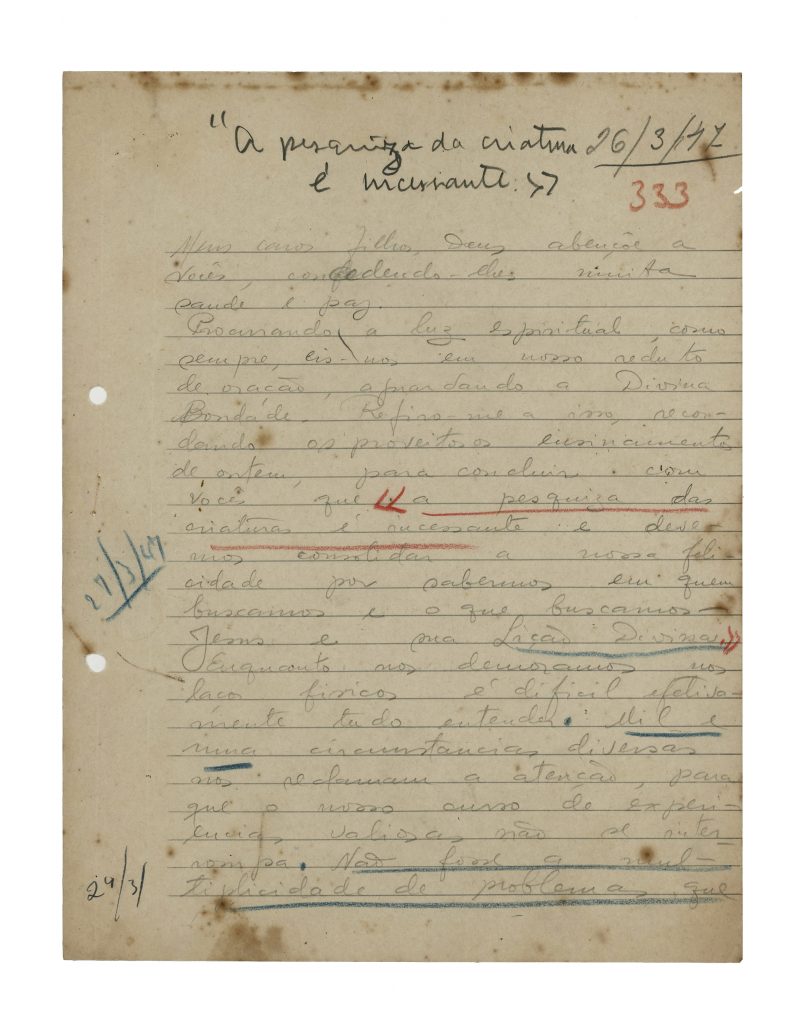 "A pesquiza da criatura 26/3/47
é incessante."
333
Meus caros filhos, Deus abençôe a
vocês, concedendo-lhes muita
saude e paz.
Procurando a luz espiritual, como
sempre, eis-nos em nosso reduto
de oração, aguardando a Divina
Bondade. Refiro-me a isso, recor-
dando os proveitosos ensinamentos
de ontem, para concluir com
vocês que "a pesquiza das
criaturas é incessante e deve-
mos consolidar a nossa feli-
27/3/47
cidade por sabermos em quem
buscamos e o que buscamos –
Jesus e sua Lição Divina."
Enquanto nos demoramos nos
laços fisicos é dificil efetiva-
mente tudo entender. Mil e
uma circumstancias diversas
nos reclamam a atenção, para
que o nosso curso de experi-
encias valiosas não se inter-
rompa. Não fosse a mul-
27/3/
tiplicidade de problemas que